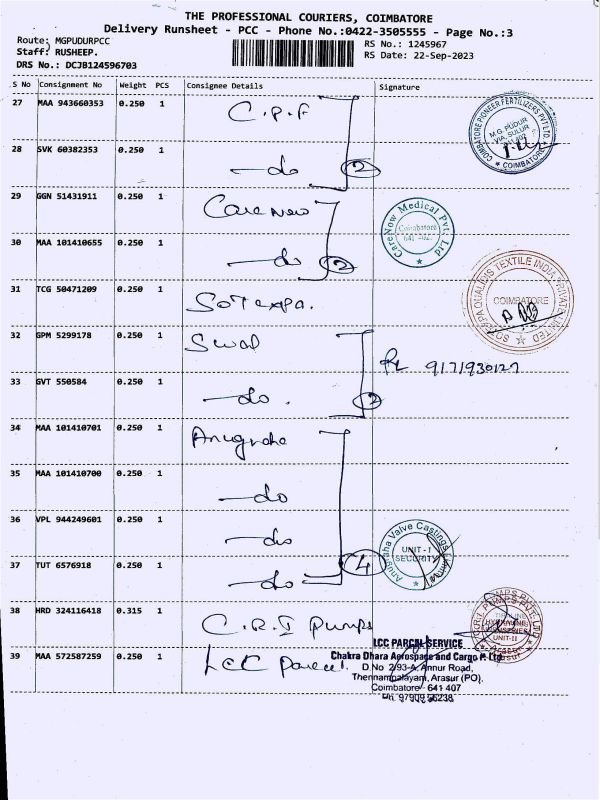 THE PROFESSIONAL COURIERS, COIMBATORE
Delivery Runsheet - PCC - Phone No.:0422-3505555 - Page No.:3
Route: MGPUDURPCC
Staff: RUSHEEP.
DRS No.: DCJB124596703
RS No.: 1245967
RS Date: 22-Sep-2023
S No Consignment No Weight PCS Consignee Details Signature
27 MAA 943660353 0.250 1 C.P.F
COIMBATORE PIONEER FERTILIZERS PVT LTD.
M.G. PUDUR
VIA, SULUR
* COIMBATORE *
28 SVK 60382353 0.250 1 —do 2
29 GGN 51431911 0.250 1 Care now
CareNow Medical Pvt Ltd
Coimbatore
641
30 MAA 101410655 0.250 1 —do 2
31 TCG 50471209 0.250 1 Sotexpa.
SOTEXPA QUALIDIS TEXTILE INDIA PRIVATE LIMITED
COIMBATORE
32 GPM 5299178 0.250 1 Swal
9171930127
33 GVT 550584 0.250 1 —do. 2
34 MAA 101410701 0.250 1 Anugraha
35 MAA 101410700 0.250 1 —do
36 VPL 944249601 0.250 1 —do
Anugraha Valve Castings Limited
UNIT - I
SECURITY
37 TUT 6576918 0.250 1 —do 4
38 HRD 324116418 0.315 1 C.R.I Pumps
C.R.I. PUMPS PVT. LTD
UNIT-II
Arasur
39 MAA 572587259 0.250 1 LCC Parcel.
LCC PARCEL SERVICE
Chakra Dhara Aerospace and Cargo P Ltd
D.No 2/93-A, Annur Road,
Thennampalayam, Arasur (PO).
Coimbatore - 641 407
Ph. 97909 56238